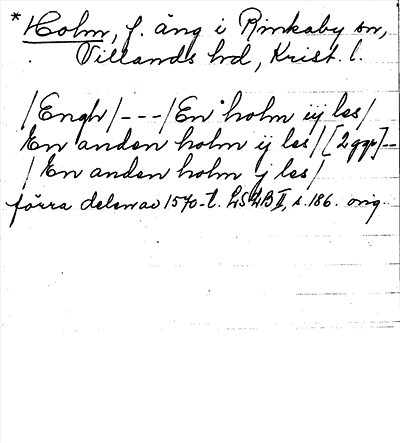 * Holm, f. äng i Rinkaby sn,
Villands hd, Krist. l.
/Engh/ --- /En holm iij les/
En anden holm ij les/ [2 ggr] --
/En anden holm j les/
förra delen av 1570-t. LSLB II, s. 186. orig.